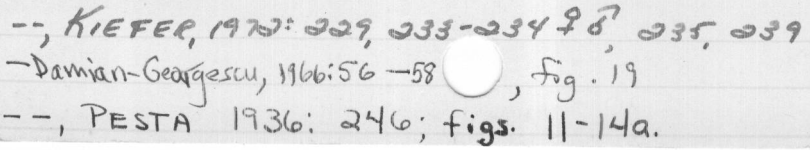 --, KIEFER, 1972: 229, 233-234 ♀♂, 235, 239
-Damian-Georgescu, 1966:56-58 , fig. 19
--, PESTA 1936: 246; figs. 11-14a.